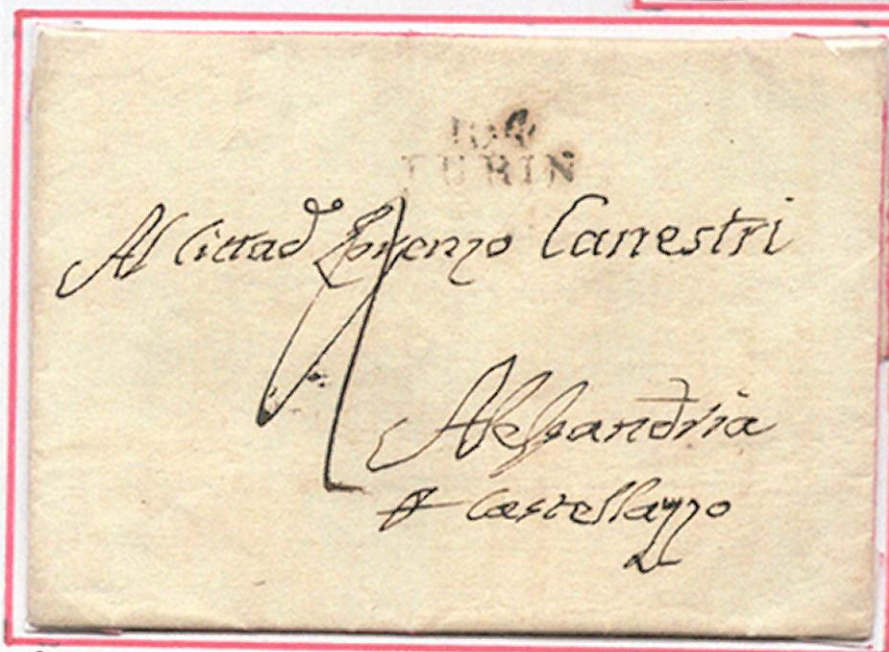 104
TURIN
Al Cittad Lorenzo Canestri
Alessandria
Castellazzo